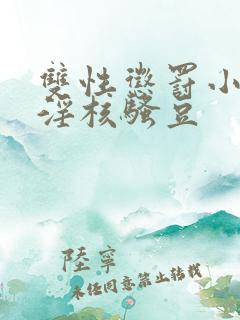 雙性懲罰小
淫核騷豆
陸寧
未經同意禁止轉載